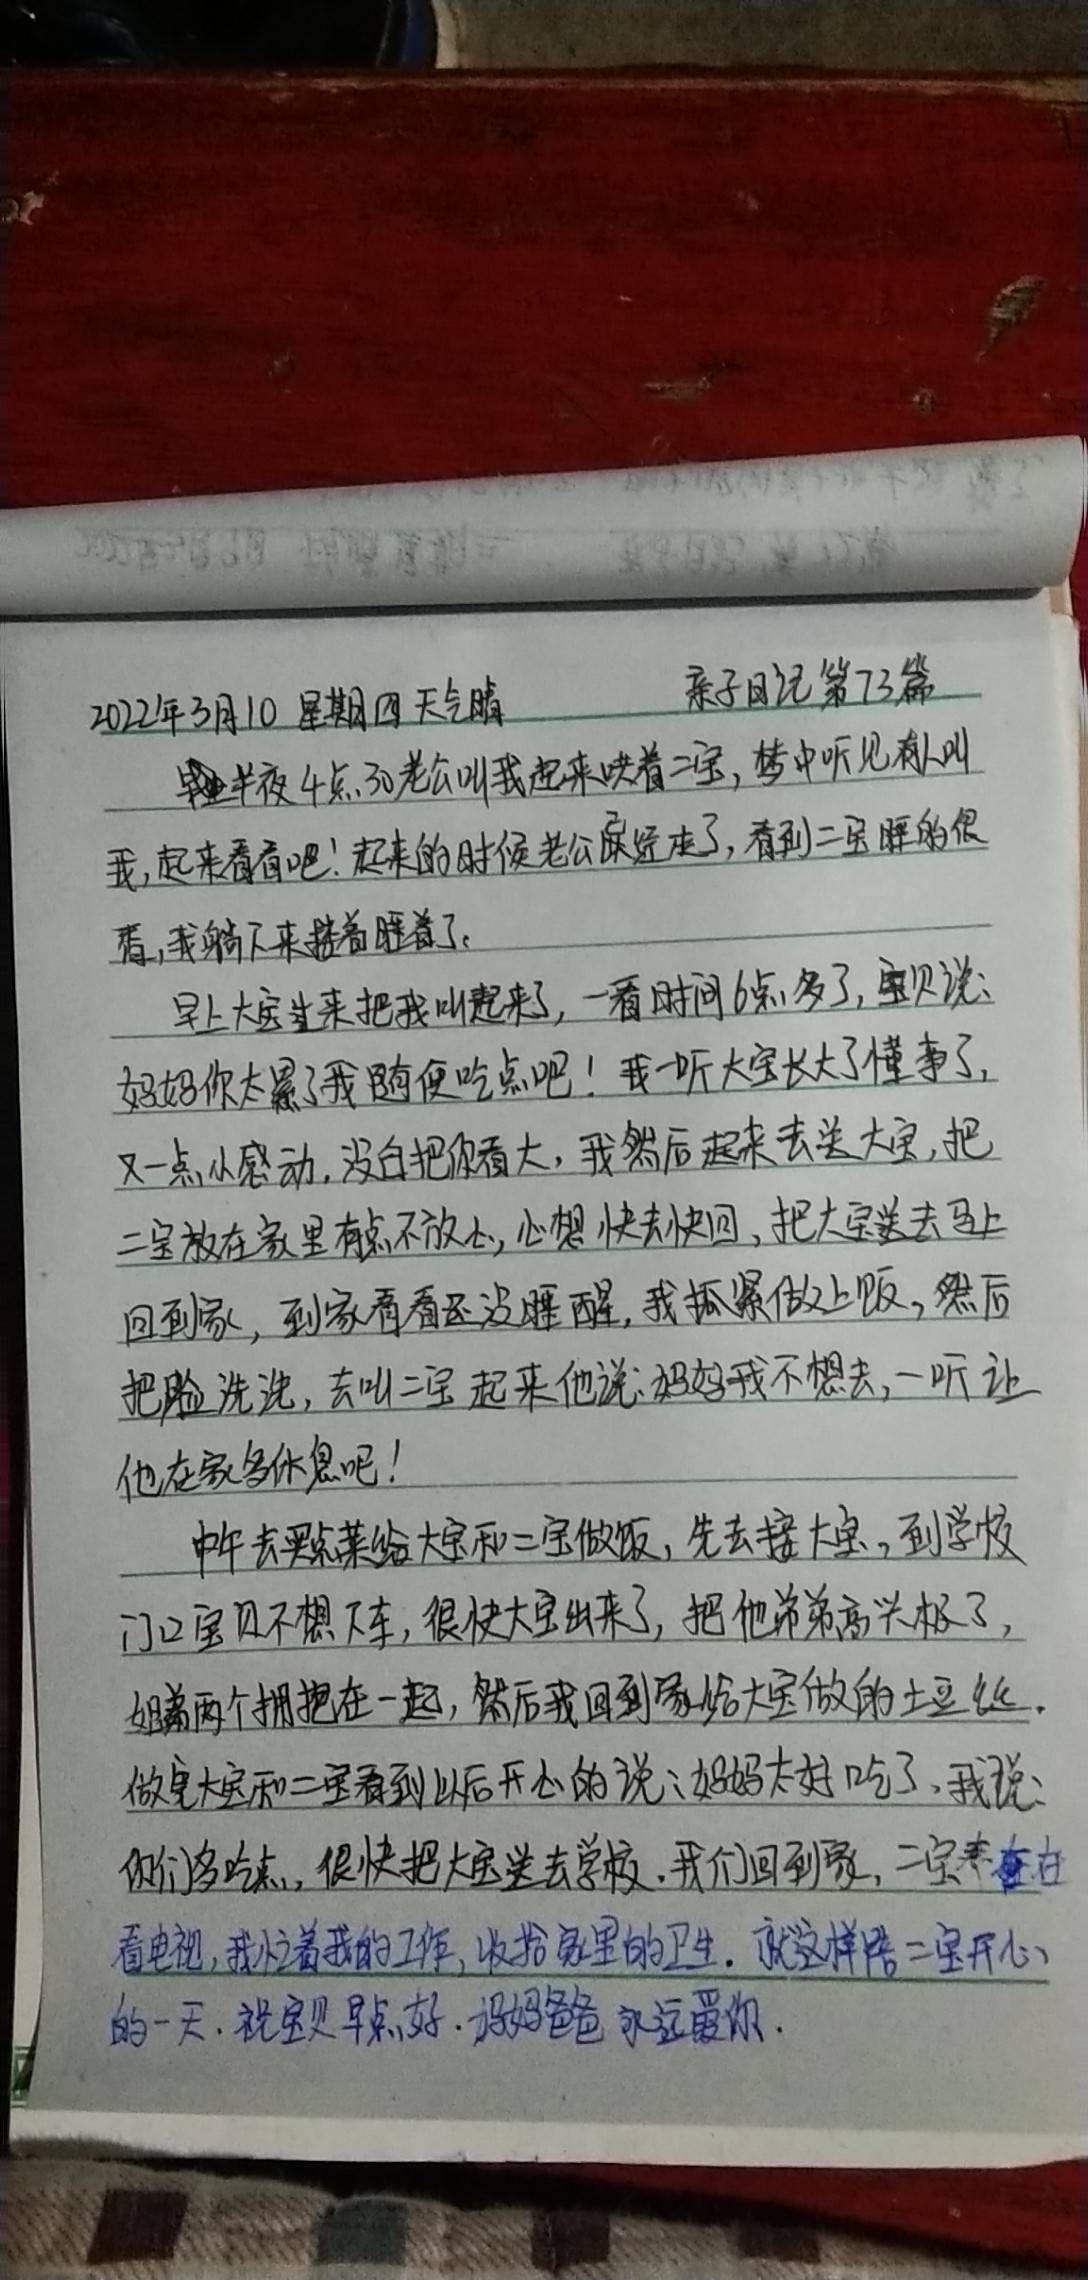 2022年3月10 星期四 天气晴 亲子日记第73篇
半夜4点30老公叫我起来哄着二宝，梦中听见有人叫
我，起来看看吧！起来的时候老公已经走了，看到二宝睡的很
香，我躺下来接着睡着了。
早上大宝过来把我叫起来了，一看时间6点多了，宝贝说：
妈妈你太累了我随便吃点吧！我一听大宝长大了懂事了，
又一点小感动，没白把你看大，我然后起来去送大宝，把
二宝放在家里有点不放心，心想快去快回，把大宝送去马上
回到家，到家看看还没睡醒，我抓紧做上饭，然后
把脸洗洗，去叫二宝起来他说：妈妈我不想去，一听让
他在家多休息吧！
中午去买点菜给大宝和二宝做饭，先去接大宝，到学校
门口宝贝不想下车，很快大宝出来了，把他弟弟高兴极了，
姐弟两个拥抱在一起，然后我回到家给大宝做的土豆丝.
做完大宝和二宝看到以后开心的说：妈妈太好吃了，我说：
你们多吃点，很快把大宝送去学校.我们回到家，二宝在
看电视，我忙着我的工作，收拾家里的卫生.就这样陪二宝开心
的一天.祝宝贝早点好.妈妈爸爸永远爱你.